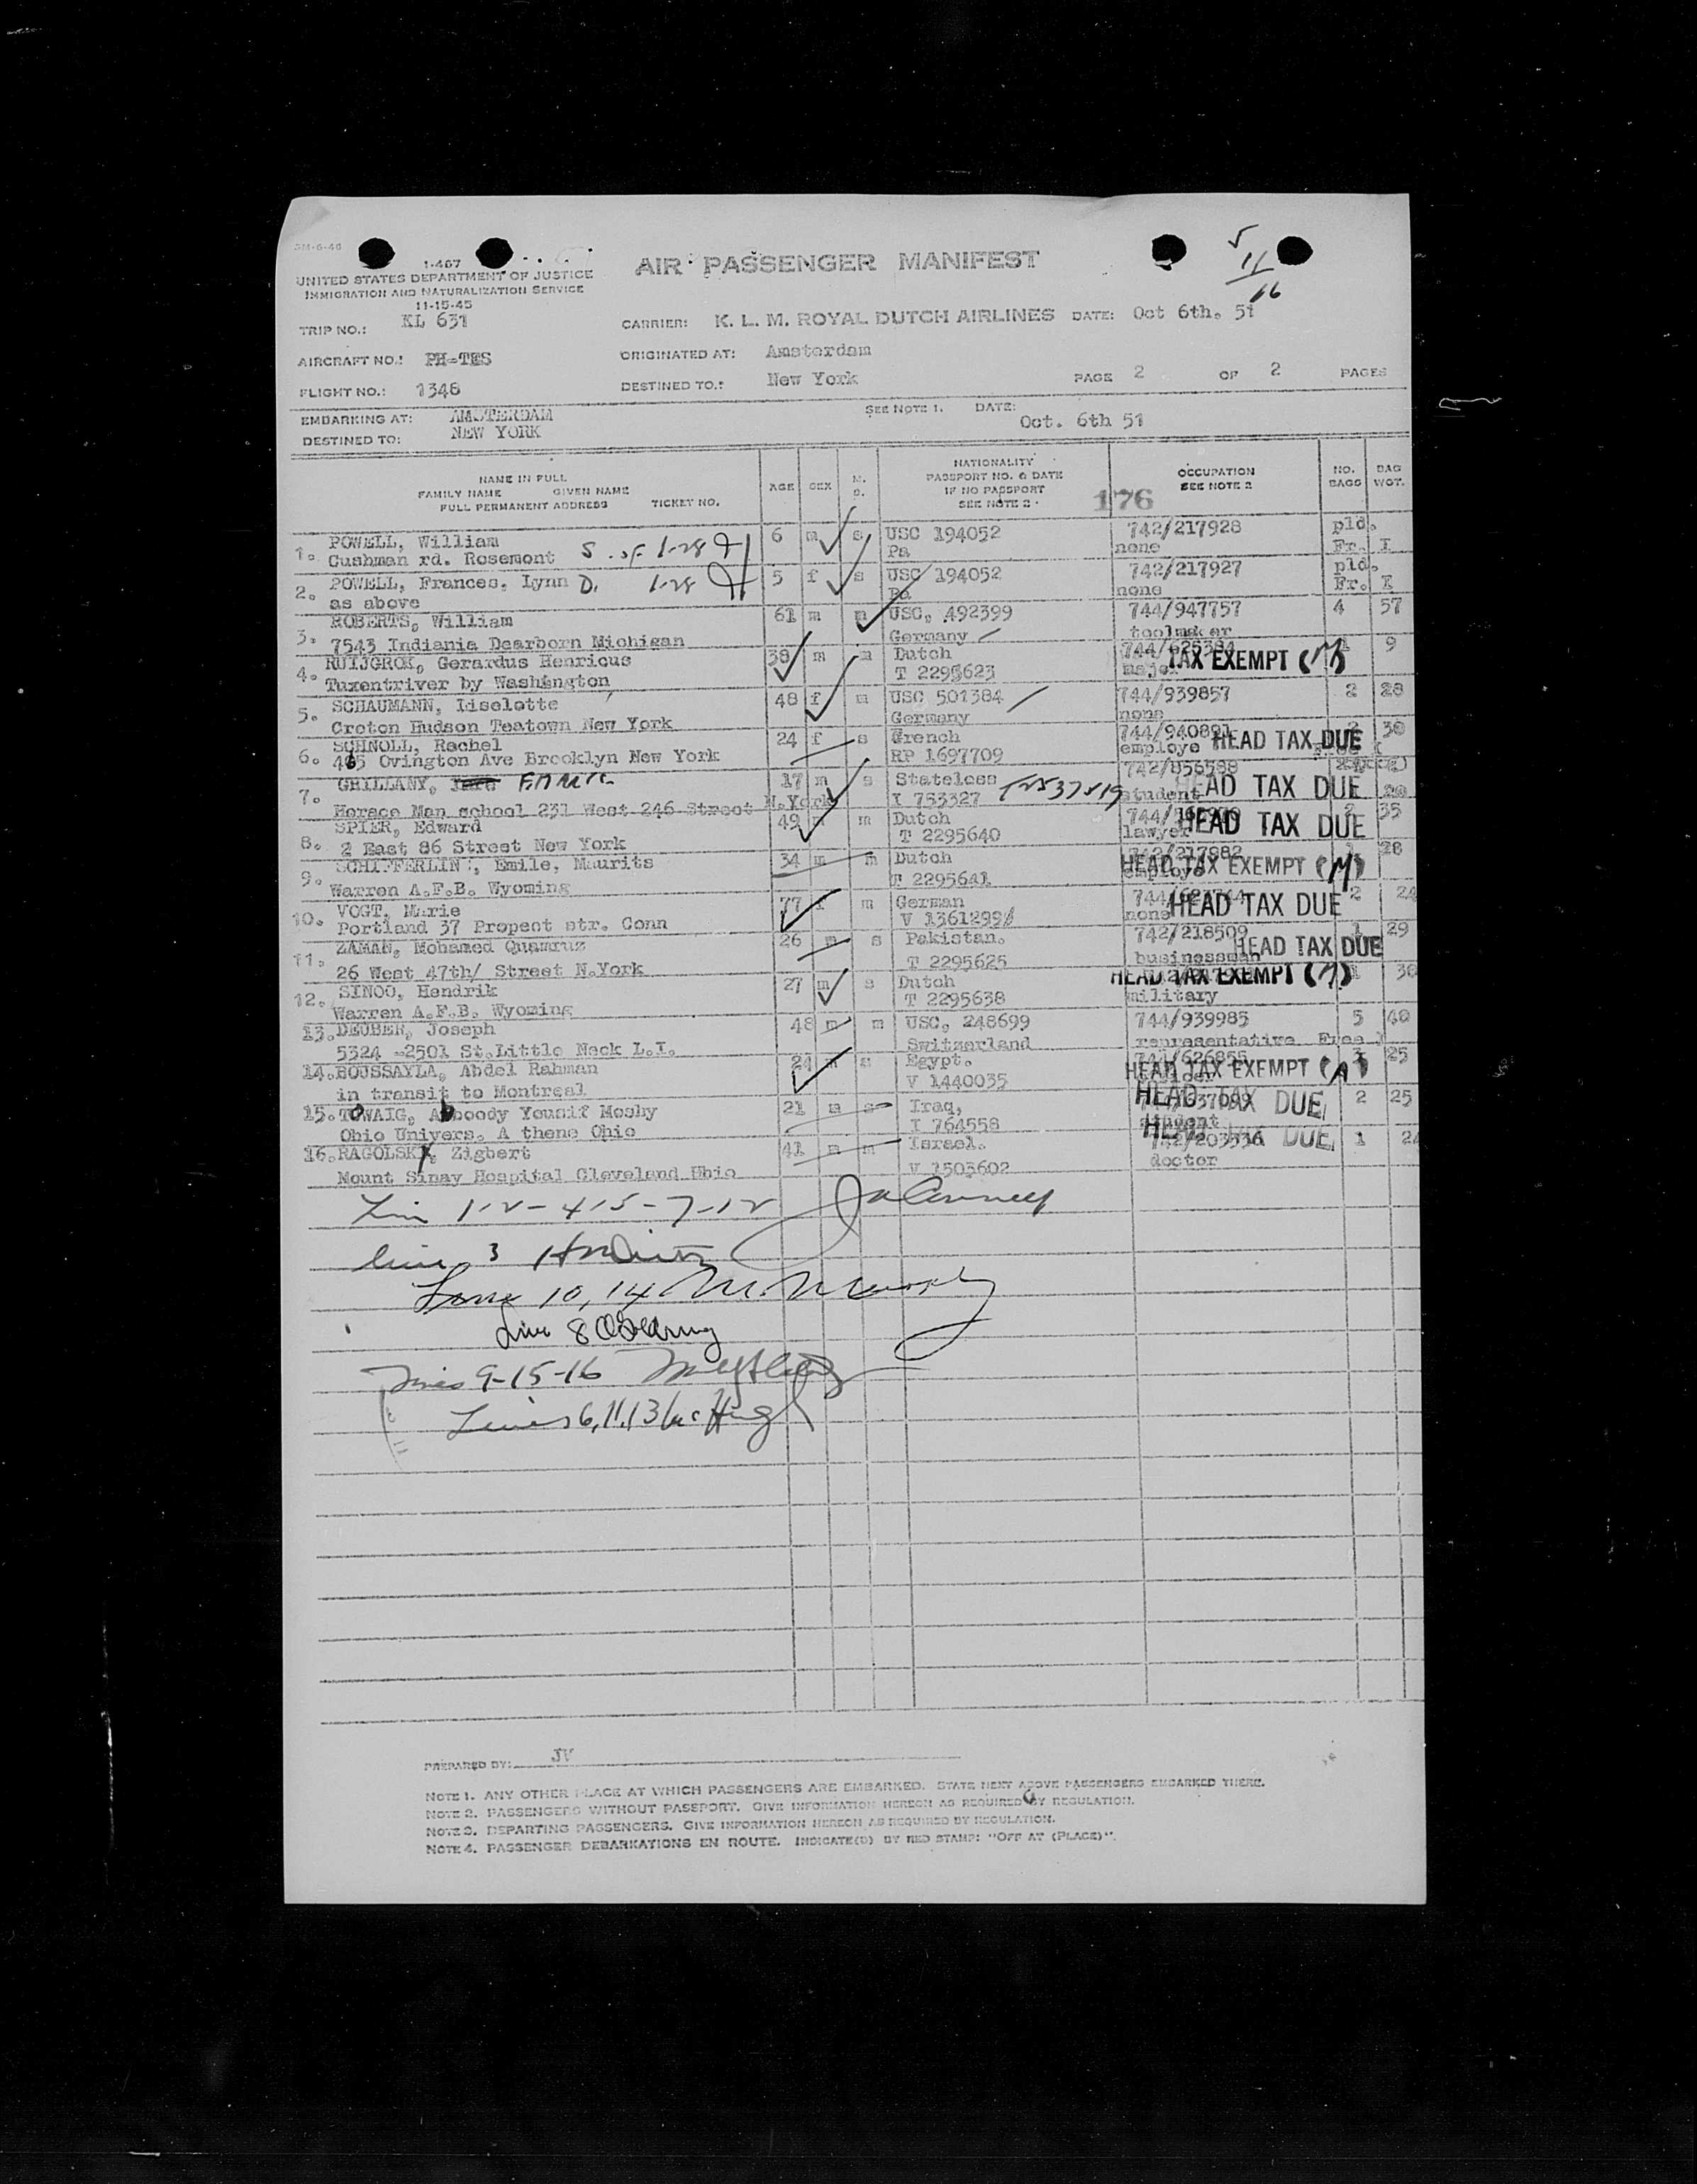 SM-6-46
1-467
UNITED STATES DEPARTMENT OF JUSTICE
IMMIGRATION AND NATURALIZATION SERVICE
11-15-45
AIR PASSENGER MANIFEST
5
11
16
TRIP NO.: KL 631 CARRIER: K. L. M. ROYAL DUTCH AIRLINES DATE: Oct 6th. 51
AIRCRAFT NO.: PH-TES ORIGINATED AT: Amsterdam
FLIGHT NO.: 1348 DESTINED TO.: New York PAGE 2 OF 2 PAGES
EMBARKING AT: AMSTERDAM SEE NOTE 1. DATE: Oct. 6th 51
DESTINED TO: NEW YORK
NAME IN FULL
FAMILY NAME GIVEN NAME
FULL PERMANENT ADDRESS TICKET NO.
AGE SEX M. S.
NATIONALITY
PASSPORT NO. & DATE
IF NO PASSPORT
SEE NOTE 2
176
OCCUPATION
SEE NOTE 2
NO. BAGS
BAG WGT.
1. POWELL, William S. of 1-28 6 m s USC 194052 742/217928 pld.
Cushman rd. Rosemont Pa none Fr. I
2. POWELL, Frances, Lynn D. 1-28 5 f s USC 194052 742/217927 pld.
as above Pa none Fr. I
3. ROBERTS, William 61 m m USC, 492399 744/947757 4 57
7543 Indiania Dearborn Michigan Germany toolmaker
4. RUIJGROK, Gerardus Henricus 38 m m Dutch TAX EXEMPT (M) 1 9
Tuxentriver by Washington T 2295623 major
5. SCHAUMANN, Liselotte 48 f m USC 501384 744/939857 2 28
Croton Hudson Teatown New York Germany none
6. SCHNOLL, Rachel 24 f s French 744/940891 HEAD TAX DUE 2 30
465 Ovington Ave Brooklyn New York RP 1697709 employe
7. GHILLANY, 17 m s Stateless 742/856588
Horace Man school 231 West 246 Street N.York I 753327 student HEAD TAX DUE
8. SPIER, Edward 49 m m Dutch HEAD TAX DUE 2 35
2 East 86 Street New York T 2295640 lawyer
9. SCHIFFERLING, Emile, Maurits 34 m m Dutch 742/217882 1 28
Warren A.F.B. Wyoming T 2295641 employe HEAD TAX EXEMPT (M)
10. VOGT, Marie 77 f m German HEAD TAX DUE 2 24
Portland 37 Propect str. Conn V 1361299 none
11. ZAMAN, Mohamed Quamruz 26 m s Pakistan. 742/218509 1 29
26 West 47th/ Street N.York T 2295625 businessman HEAD TAX DUE
12. SINOO, Hendrik 27 m s Dutch HEAD TAX EXEMPT (M) 1 30
Warren A.F.B. Wyoming T 2295638 military
13. DEUBER, Joseph 48 m m USC, 248699 744/939985 5 40
5324 -2501 St.Little Neck L.I. Switzerland representatire Free I
14. BOUSSAYLA, Abdel Rahman 24 m s Egypt. 744/626855 25
in transit to Montreal V 1440035 HEAD TAX EXEMPT (A)
15. TOWAIG, Abboody Younif Moshy 21 m s Iraq, HEAD TAX DUE 2 25
Ohio Univers. A thene Ohio I 764558 student
16. RAGOLSKY, Zigbert 41 m m Israel. 742/203536 HEAD TAX DUE 1 24
Mount Sinay Hospital Cleveland Ohio V 1503602 doctor
Lin 1-2-4-5-7-12
line 3
Line 10, 14
Line 8
Lines 9-15-16
Lines 6, 11, 13 McHugh
PREPARED BY: JV
NOTE 1. ANY OTHER PLACE AT WHICH PASSENGERS ARE EMBARKED. STATE NEXT ABOVE PASSENGERS EMBARKED THERE.
NOTE 2. PASSENGERS WITHOUT PASSPORT. GIVE INFORMATION HEREON AS REQUIRED BY REGULATION.
NOTE 3. DEPARTING PASSENGERS. GIVE INFORMATION HEREON AS REQUIRED BY REGULATION.
NOTE 4. PASSENGER DEBARKATIONS EN ROUTE. INDICATE(D) BY RED STAMP: "OFF AT (PLACE)".